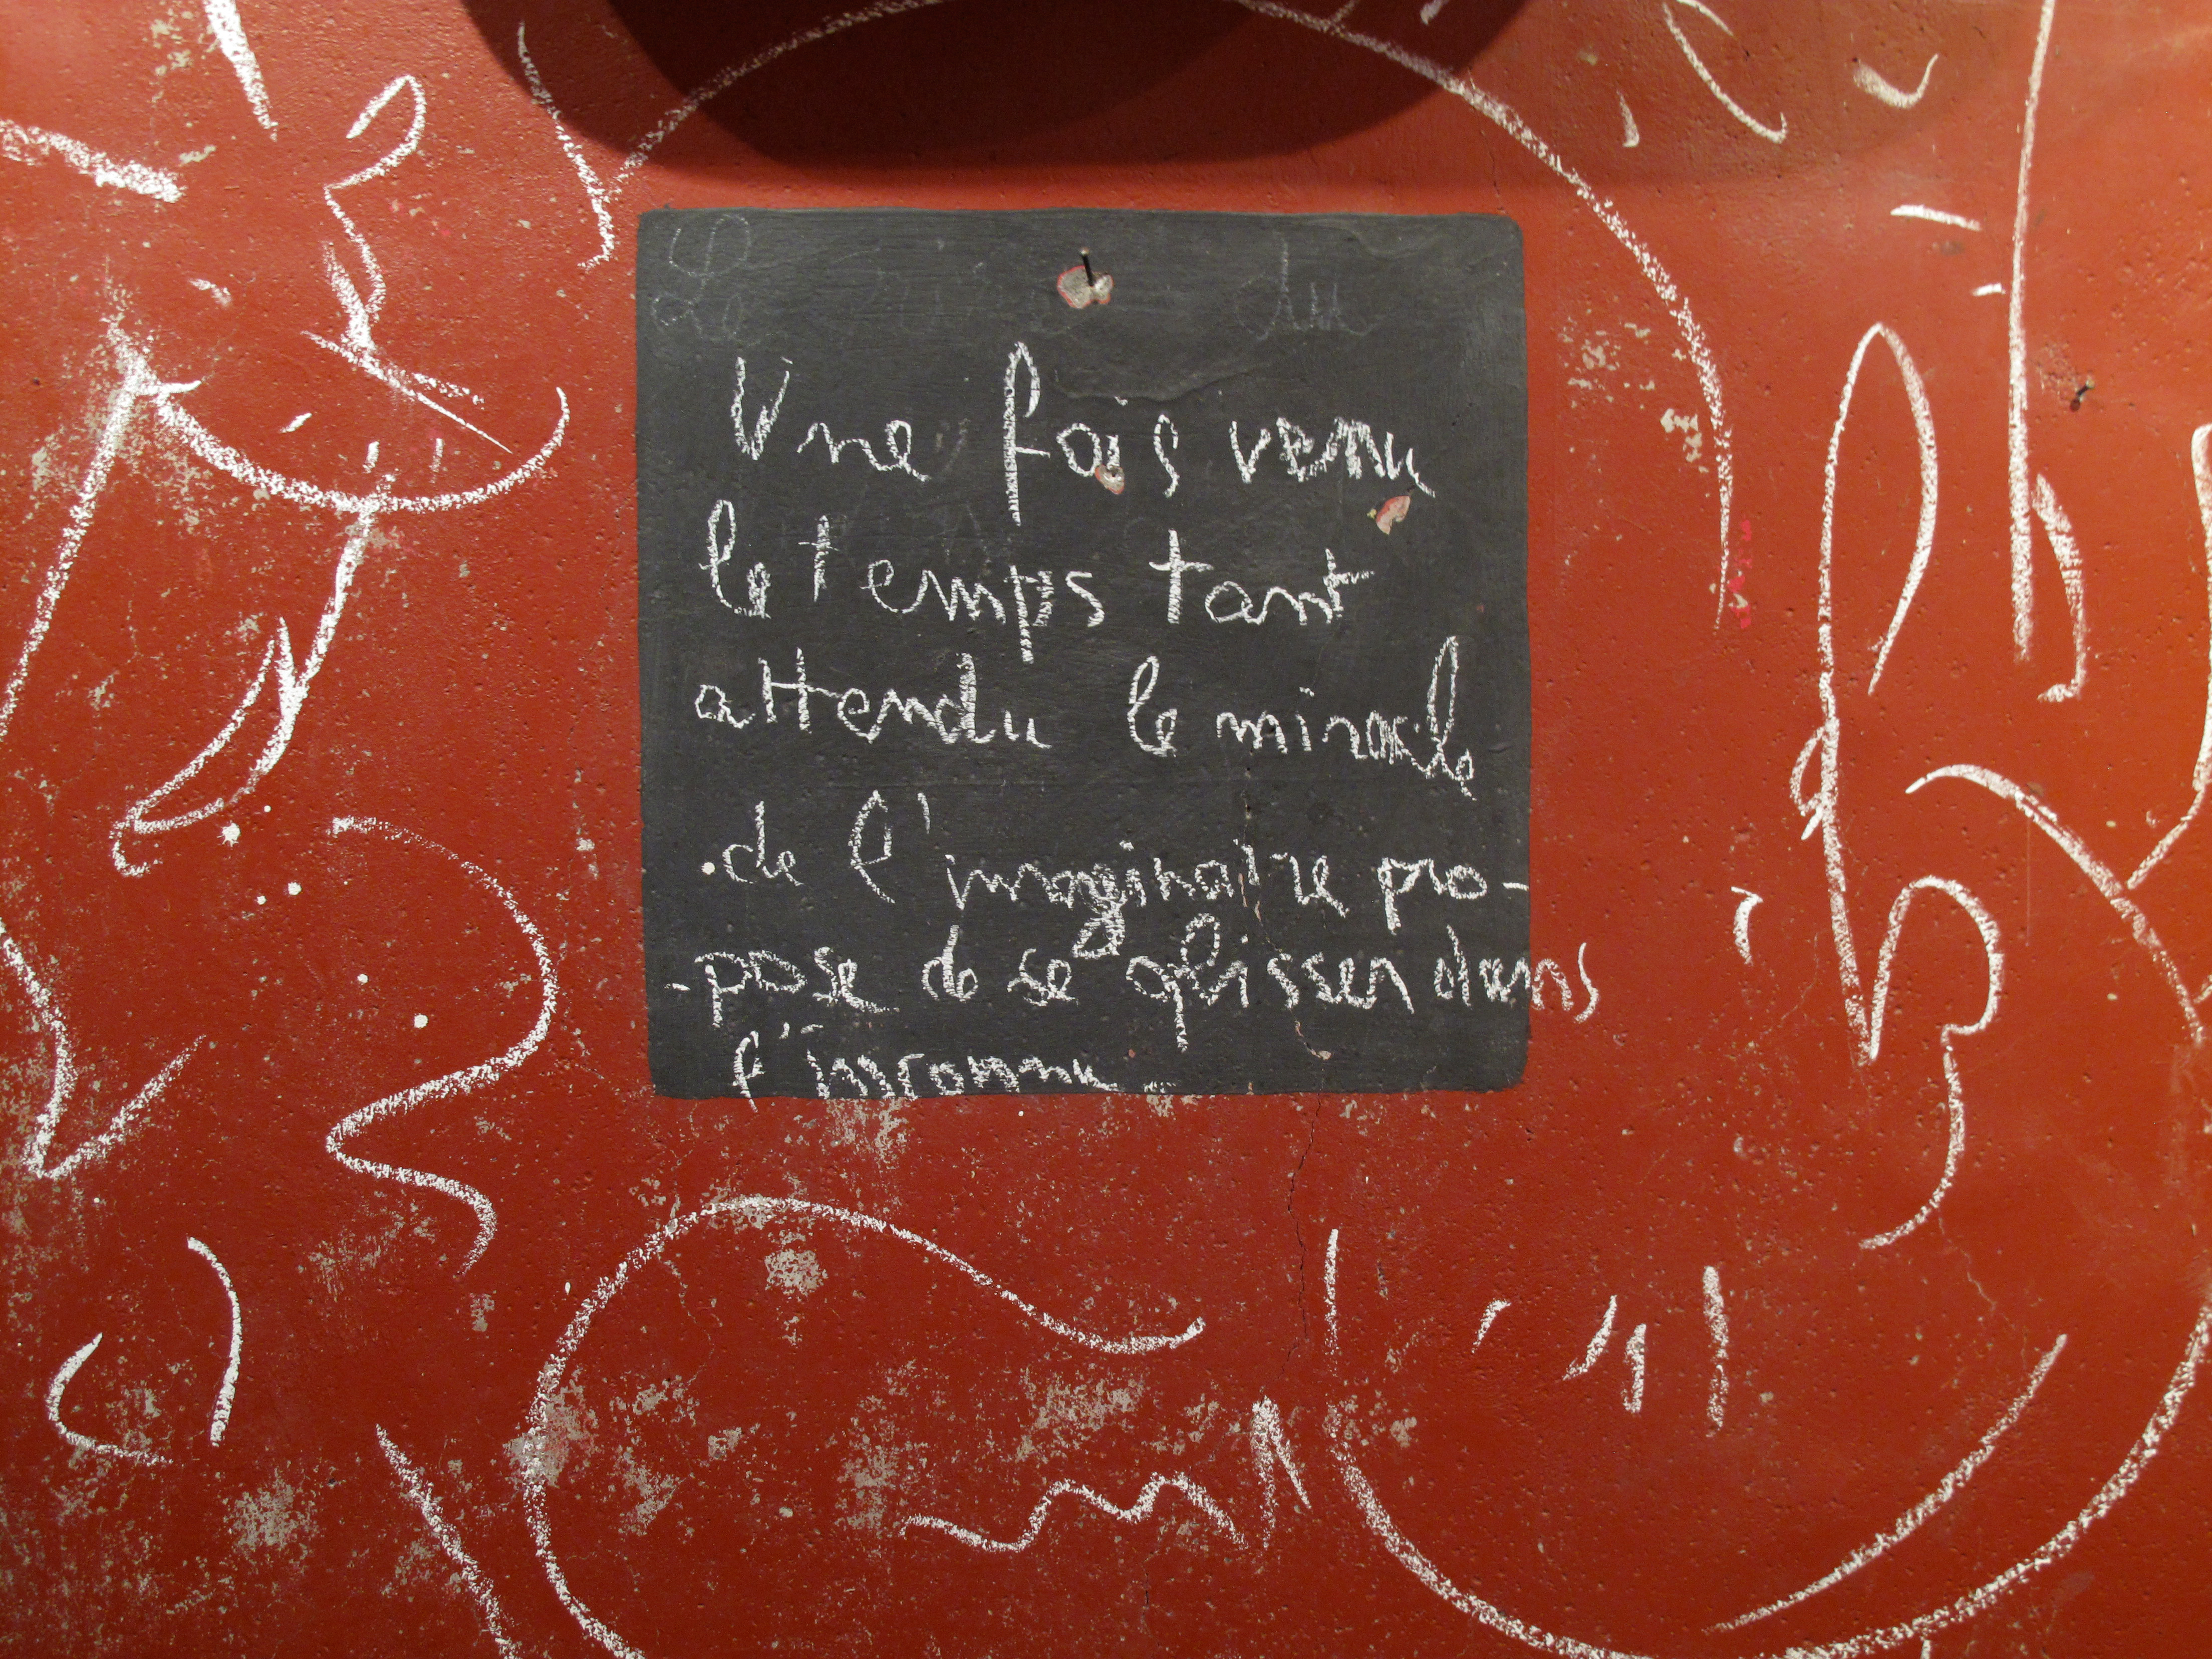 du
Une fois venu
le temps tant
attendu le miracle
de l'imaginaire pro-
-pose de se glisser dans
l'inconnu